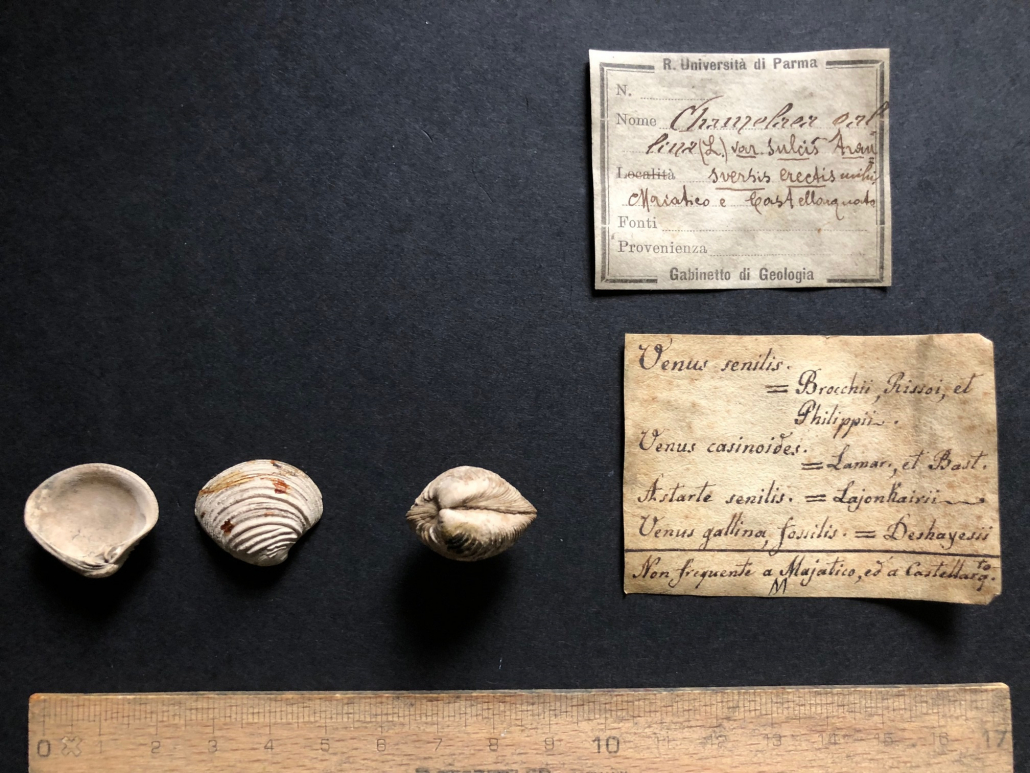 R. Università di Parma
N.
Nome Chamelaea gal
lina (L.) var. sulcis tran
Località sversis erectis mihi
Maiatico e Castellarquato
Fonti
Provenienza
Gabinetto di Geologia
Venus senilis.
= Brocchii, Rissoi, et
Philippii.
Venus casinoides.
= Lamar., et Bast.
Astarte senilis. = Lajonkairii
Venus gallina, fossilis. = Deshayesii
Non frequente a Majatico, ed a Castellarq.to
M
0 1 2 3 4 5 6 7 8 9 10 11 12 13 14 15 16 17